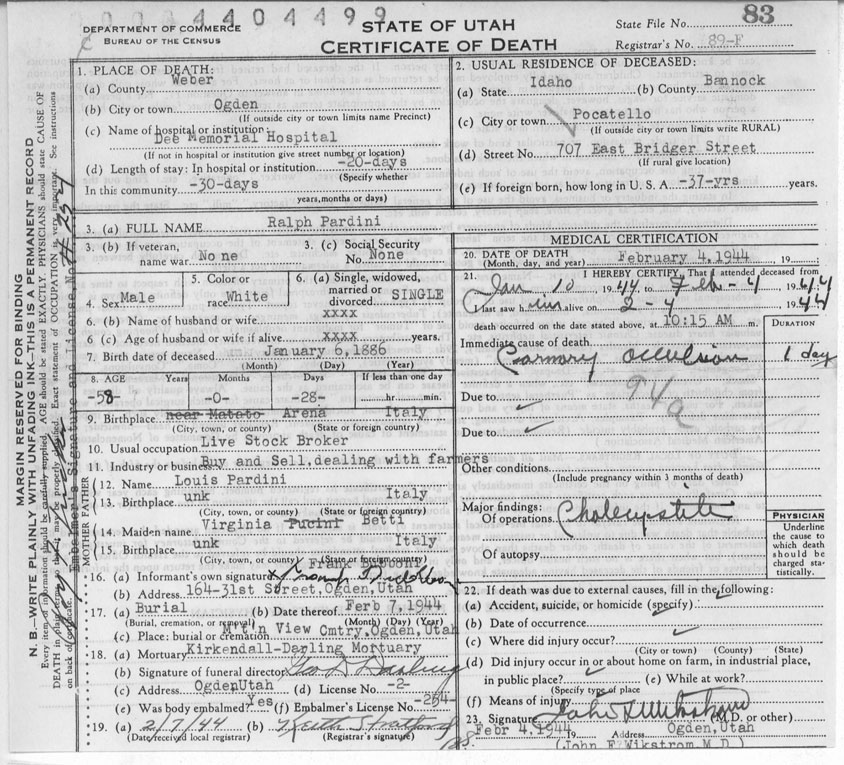 0004404499
DEPARTMENT OF COMMERCE
BUREAU OF THE CENSUS
STATE OF UTAH
CERTIFICATE OF DEATH
State File No. 83
Registrar's No. 89-F
MARGIN RESERVED FOR BINDING
N. B.—WRITE PLAINLY WITH UNFADING INK—THIS IS A PERMANENT RECORD
Every item of information should be carefully supplied. AGE should be stated EXACTLY. PHYSICIANS should state CAUSE OF
DEATH in plain terms, so that it may be properly classified. Exact statement of OCCUPATION is very important. See instructions
on back of certificate.
Embalmer's Signature and License No.
1. PLACE OF DEATH:
(a) County Weber
(b) City or town Ogden
(If outside city or town limits name Precinct)
(c) Name of hospital or institution:
Dee Memorial Hospital
(If not in hospital or institution give street number or location)
(d) Length of stay: In hospital or institution -20-days
(Specify whether
In this community -30-days
years, months or days)
2. USUAL RESIDENCE OF DECEASED:
(a) State Idaho (b) County Bannock
(c) City or town Pocatello
(If outside city or town limits write RURAL)
(d) Street No. 707 East Bridger Street
(If rural give location)
(e) If foreign born, how long in U. S. A. -37-yrs years.
3. (a) FULL NAME Ralph Pardini
3. (b) If veteran,
name war No ne
3. (c) Social Security
No. None
4. Sex Male
5. Color or
race White
6. (a) Single, widowed,
married or
divorced SINGLE
6. (b) Name of husband or wife xxxx
6 (c) Age of husband or wife if alive xxxx years.
7. Birth date of deceased January 6,1886
(Month) (Day) (Year)
8. AGE Years Months Days If less than one day
-58- -0- -28- hr. min.
9. Birthplace near Matato Arena Italy
(City, town, or county) (State or foreign country)
10. Usual occupation Live Stock Broker
11. Industry or business Buy and Sell,dealing with farmers
MOTHER FATHER
12. Name Louis Pardini
13. Birthplace unk Italy
(City, town, or county) (State or foreign country)
14. Maiden name Virginia Pucini Betti
15. Birthplace unk Italy
(City, town, or county) (State or foreign country)
16. (a) Informant's own signature Frank
(b) Address 164-31st Street,Ogden,Utah
17. (a) Burial (b) Date thereof Ferb 7,1944
(Burial, cremation, or removal) (Month) (Day) (Year)
(c) Place: burial or cremation M't'n View Cmtry,Ogden,Utah
18. (a) Mortuary Kirkendall-Darling Mortuary
(b) Signature of funeral director Geo D Darling
(c) Address OgdenUtah (d) License No. -2-
(e) Was body embalmed? Yes (f) Embalmer's License No. -254-
19. (a) 2/7/44 (b) Keith Stratford
(Date received local registrar) (Registrar's signature)
MEDICAL CERTIFICATION
20. DATE OF DEATH
(Month, day, and year) February 4,1944 19
21. I HEREBY CERTIFY, That I attended deceased from
Jan 10 1944 to Feb - 4 1944
I last saw h im alive on 2 - 4 1944
death occurred on the date stated above, at 10:15 AM m.
DURATION
Immediate cause of death
Coronary occulsion 1 day
94a
Due to
Due to
Other conditions
(Include pregnancy within 3 months of death)
Major findings:
Of operations Cholecystitis
Of autopsy
PHYSICIAN
Underline
the cause to
which death
should be
charged sta-
tistically.
22. If death was due to external causes, fill in the following:
(a) Accident, suicide, or homicide (specify)
(b) Date of occurrence
(c) Where did injury occur?
(City or town) (County) (State)
(d) Did injury occur in or about home on farm, in industrial place,
in public place? (e) While at work?
(Specify type of place
(f) Means of injury
23. Signature John F Wikstrom
(M.D. or other)
Febr 4,1944 19 Address Ogden,Utah
(John F Wikstrom M.D.)